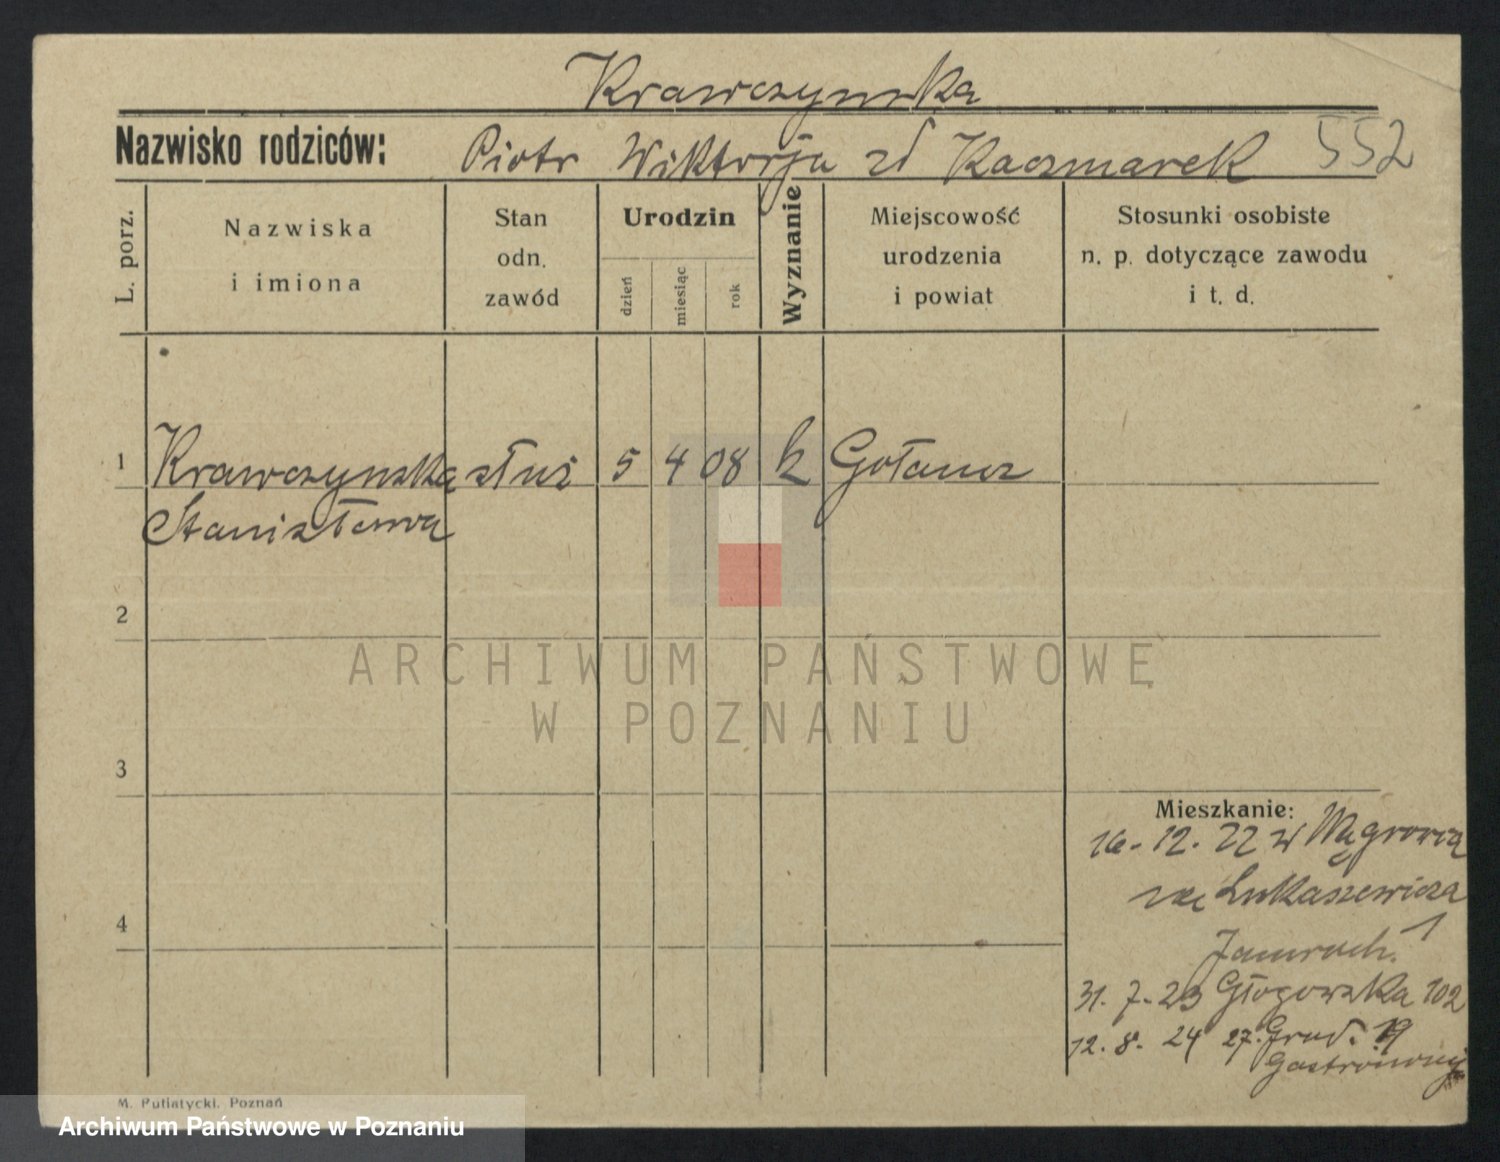 Krawczynska
Nazwisko rodziców: Piotr Wiktorja zd Kaczmarek 552
L. porz.
Nazwiska
i imiona
Stan
odn.
zawód
Urodzin
dzień
miesiąc
rok
Wyznanie
Miejscowość
urodzenia
i powiat
Stosunki osobiste
n. p. dotyczące zawodu
i t. d.
1 Krawczynska służ 5 4 08 k Gołancz
Stanisława
2
3
4
ARCHIWUM PAŃSTWOWE
W POZNANIU
Mieszkanie:
16-12. 22 w
Łukaszewicza
1
31. 7-23 Głogowska 102
12. 8. 24 27. Grud. 19
M. Putiatycki. Poznań
Archiwum Państwowe w Poznaniu